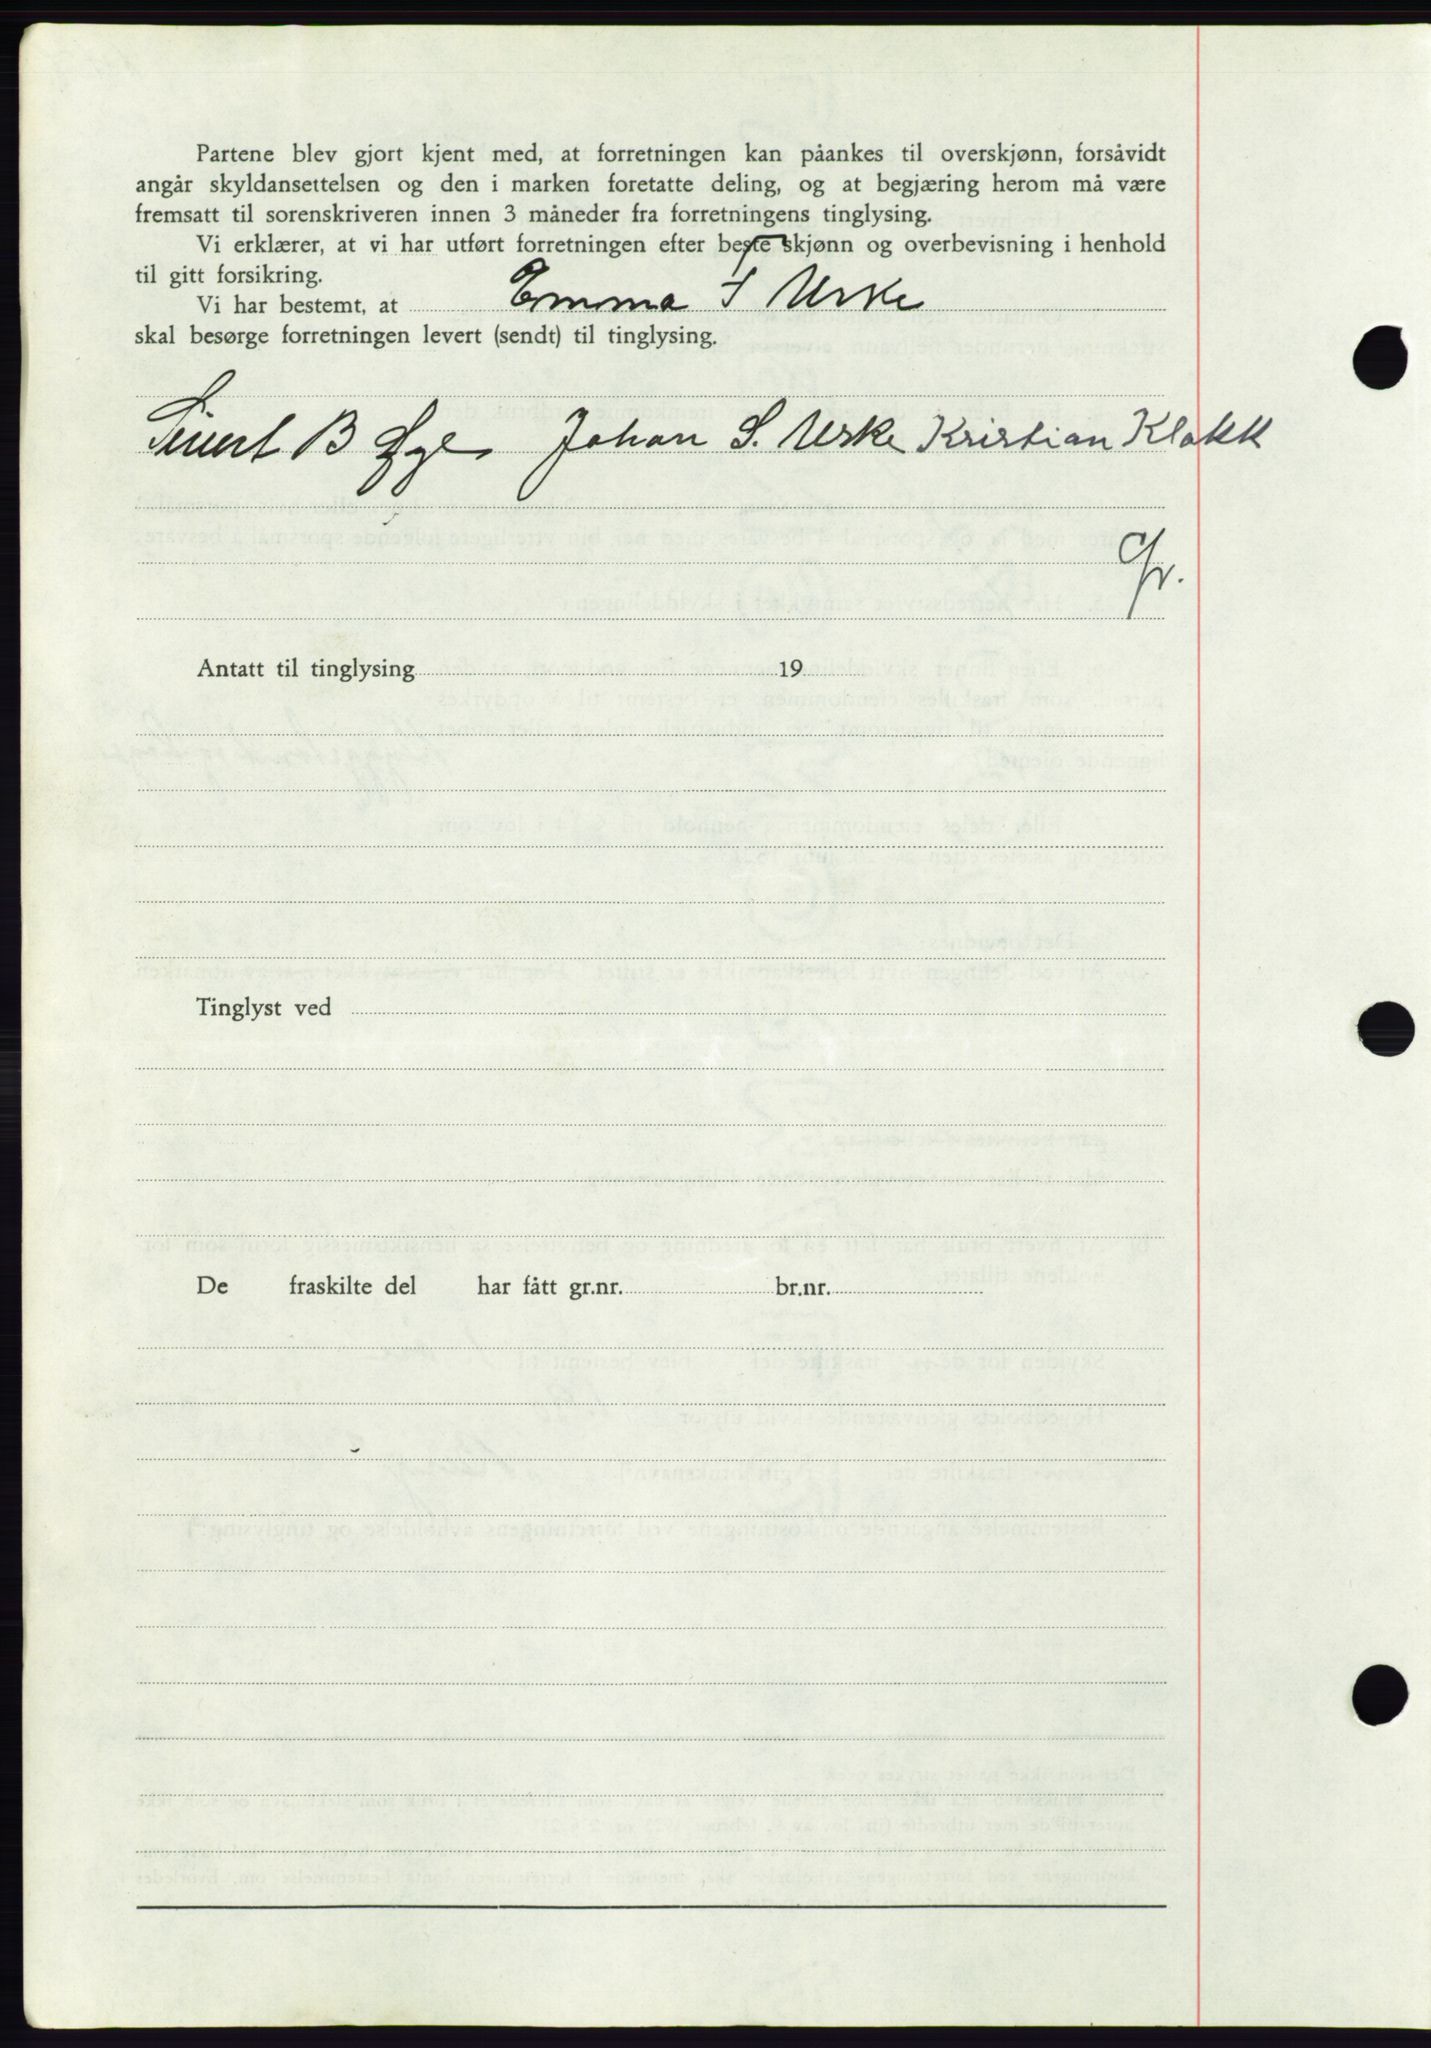 Partene blev gjort kjent med, at forretningen kan påankes til overskjønn, forsåvidt
angår skyldansettelsen og den i marken foretatte deling, og at begjæring herom må være
fremsatt til sorenskriveren innen 3 måneder fra forretningens tinglysing.
Vi erklærer, at vi har utført forretningen efter beste skjønn og overbevisning i henhold
til gitt forsikring.
Vi har bestemt, at Emma S Urke
skal besørge forretningen levert (sendt) til tinglysing.
Sivert B Øye Johan S. Urke Kristian Klokk
Antatt til tinglysing 19
Tinglyst ved
De fraskilte del har fått gr.nr. br.nr.